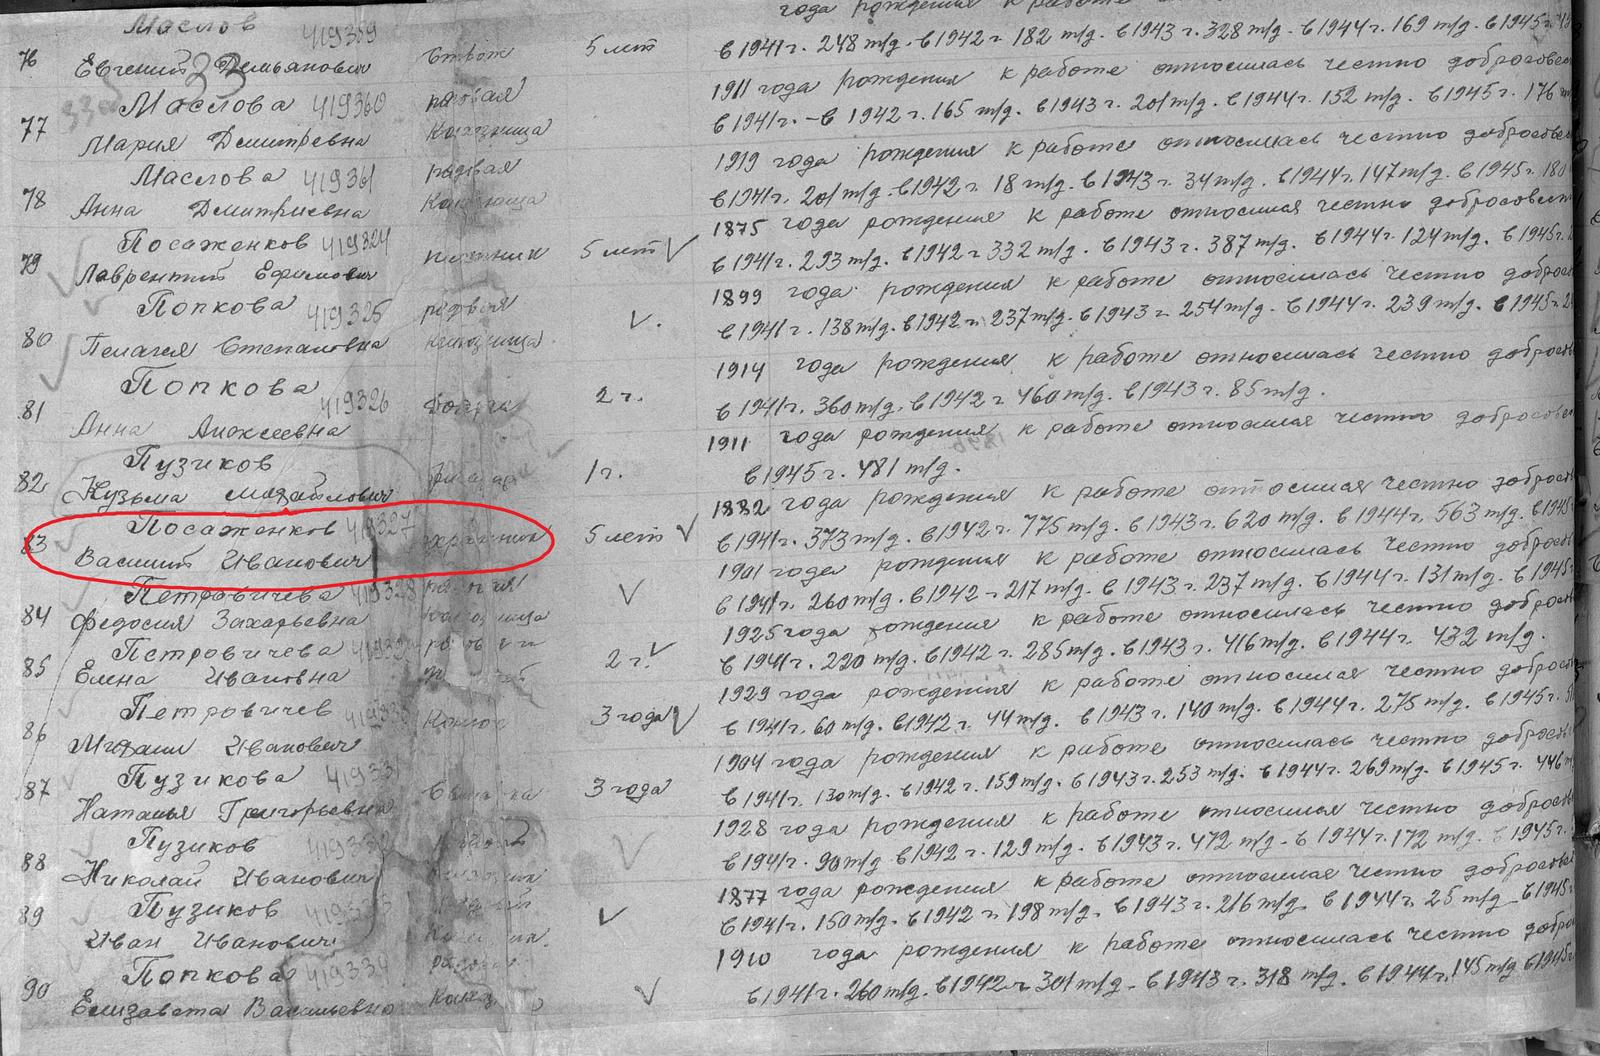 года рождения к работе
Маслов 419359
76 Евгений Демьянович 5 лет в 1941 г. 248 т/д. в 1942 г 182 т/д. в 1943 г. 328 т/д. в 1944 г. 169 т/д. в 1945 г.
33
1911 года рождения к работе относилась честно добросовес
Маслова 419360 рядовая
77 Мария Дмитревна Колхозница в 1941 г. – в 1942 г. 165 т/д. в 1943 г. 201 т/д. в 1944 г. 152 т/д. в 1945 г. 176
1919 года рождения к работе относилась честно добросовес
Маслова 419361 рядовая
78 Анна Дмитриевна в 1941 г. 201 т/д. в 1942 г 18 т/д. в 1943 г. 34 т/д. в 1944 г. 147 т/д. в 1945 г. 180
1875 года рождения к работе относился честно добросовест
Посаженков 419324
79 Лаврентий Ефимович 5 лет V в 1941 г. 293 т/д. в 1942 г 332 т/д. в 1943 г. 387 т/д. в 1944 г. 124 т/д. в 1945 г.
1899 года рождения к работе относилась честно доброс
Попкова 419325 рядовая
80 Пелагея Степановна колхозница V. в 1941 г. 138 т/д. в 1942 г. 237 т/д. в 1943 г 254 т/д. в 1944 г. 239 т/д. в 1945 г.
1914 года рождения к работе относилась честно добросов
Попкова 419326
81 Анна Алексеевна 2 г. в 1941 г. 360 т/д. в 1942 г 460 т/д. в 1943 г. 85 т/д.
1911 года рождения к работе относился честно добросовес
Пузиков
82 Кузьма Михайлович 1 г. в 1945 г. 481 т/д.
1882 года рождения к работе относился честно доброс
Посаженков 419327
83 Василий Иванович 5 лет V в 1941 г. 373 т/д. в 1942 г. 775 т/д. в 1943 г. 620 т/д. в 1944 г. 563 т/д. в 1945
1901 года рождения к работе относилась честно доброс
Петровичева 419328
84 Федосия Захарьевна V в 1941 г. 260 т/д. в 1942 – 217 т/д. в 1943 г. 237 т/д. в 1944 г. 131 т/д. в 1945
1925 года рождения к работе относилась честно доброс
Петровичева
85 Елена Ивановна 2 г. V в 1941 г. 220 т/д. в 1942 г. 285 т/д. в 1943 г. 416 т/д. в 1944 г. 432 т/д.
1929 года рождения к работе относился честно доброс
Петровичев
86 Михаил Иванович 3 года V в 1941 г. 60 т/д. в 1942 г. 44 т/д. в 1943 г. 140 т/д. в 1944 г. 275 т/д. в 1945 г.
1904 года рождения к работе относилась честно доброс
Пузикова 419331
87 Наталья Григорьевна 3 года в 1941 г. 130 т/д. в 1942 г. 159 т/д. в 1943 г. 253 т/д. в 1944 г. 269 т/д. в 1945 г. 446
1928 года рождения к работе относился честно доброс
Пузиков
88 Николай Иванович V в 1941 г. 90 т/д в 1942 г. 129 т/д. в 1943 г. 472 т/д. в 1944 г. 172 т/д. в 1945 г.
1877 года рождения к работе относился честно добросове
Пузиков
89 Иван Иванович V в 1941 г. 150 т/д. в 1942 г. 198 т/д. в 1943 г. 216 т/д. в 1944 г. 25 т/д. в 1945
1910 года рождения к работе относилась честно добро
Попкова 419334
90 Елизавета Васильевна V в 1941 г. 260 т/д. в 1942 г 301 т/д. в 1943 г. 318 т/д. в 1944 г. 145 т/д в 1945 г